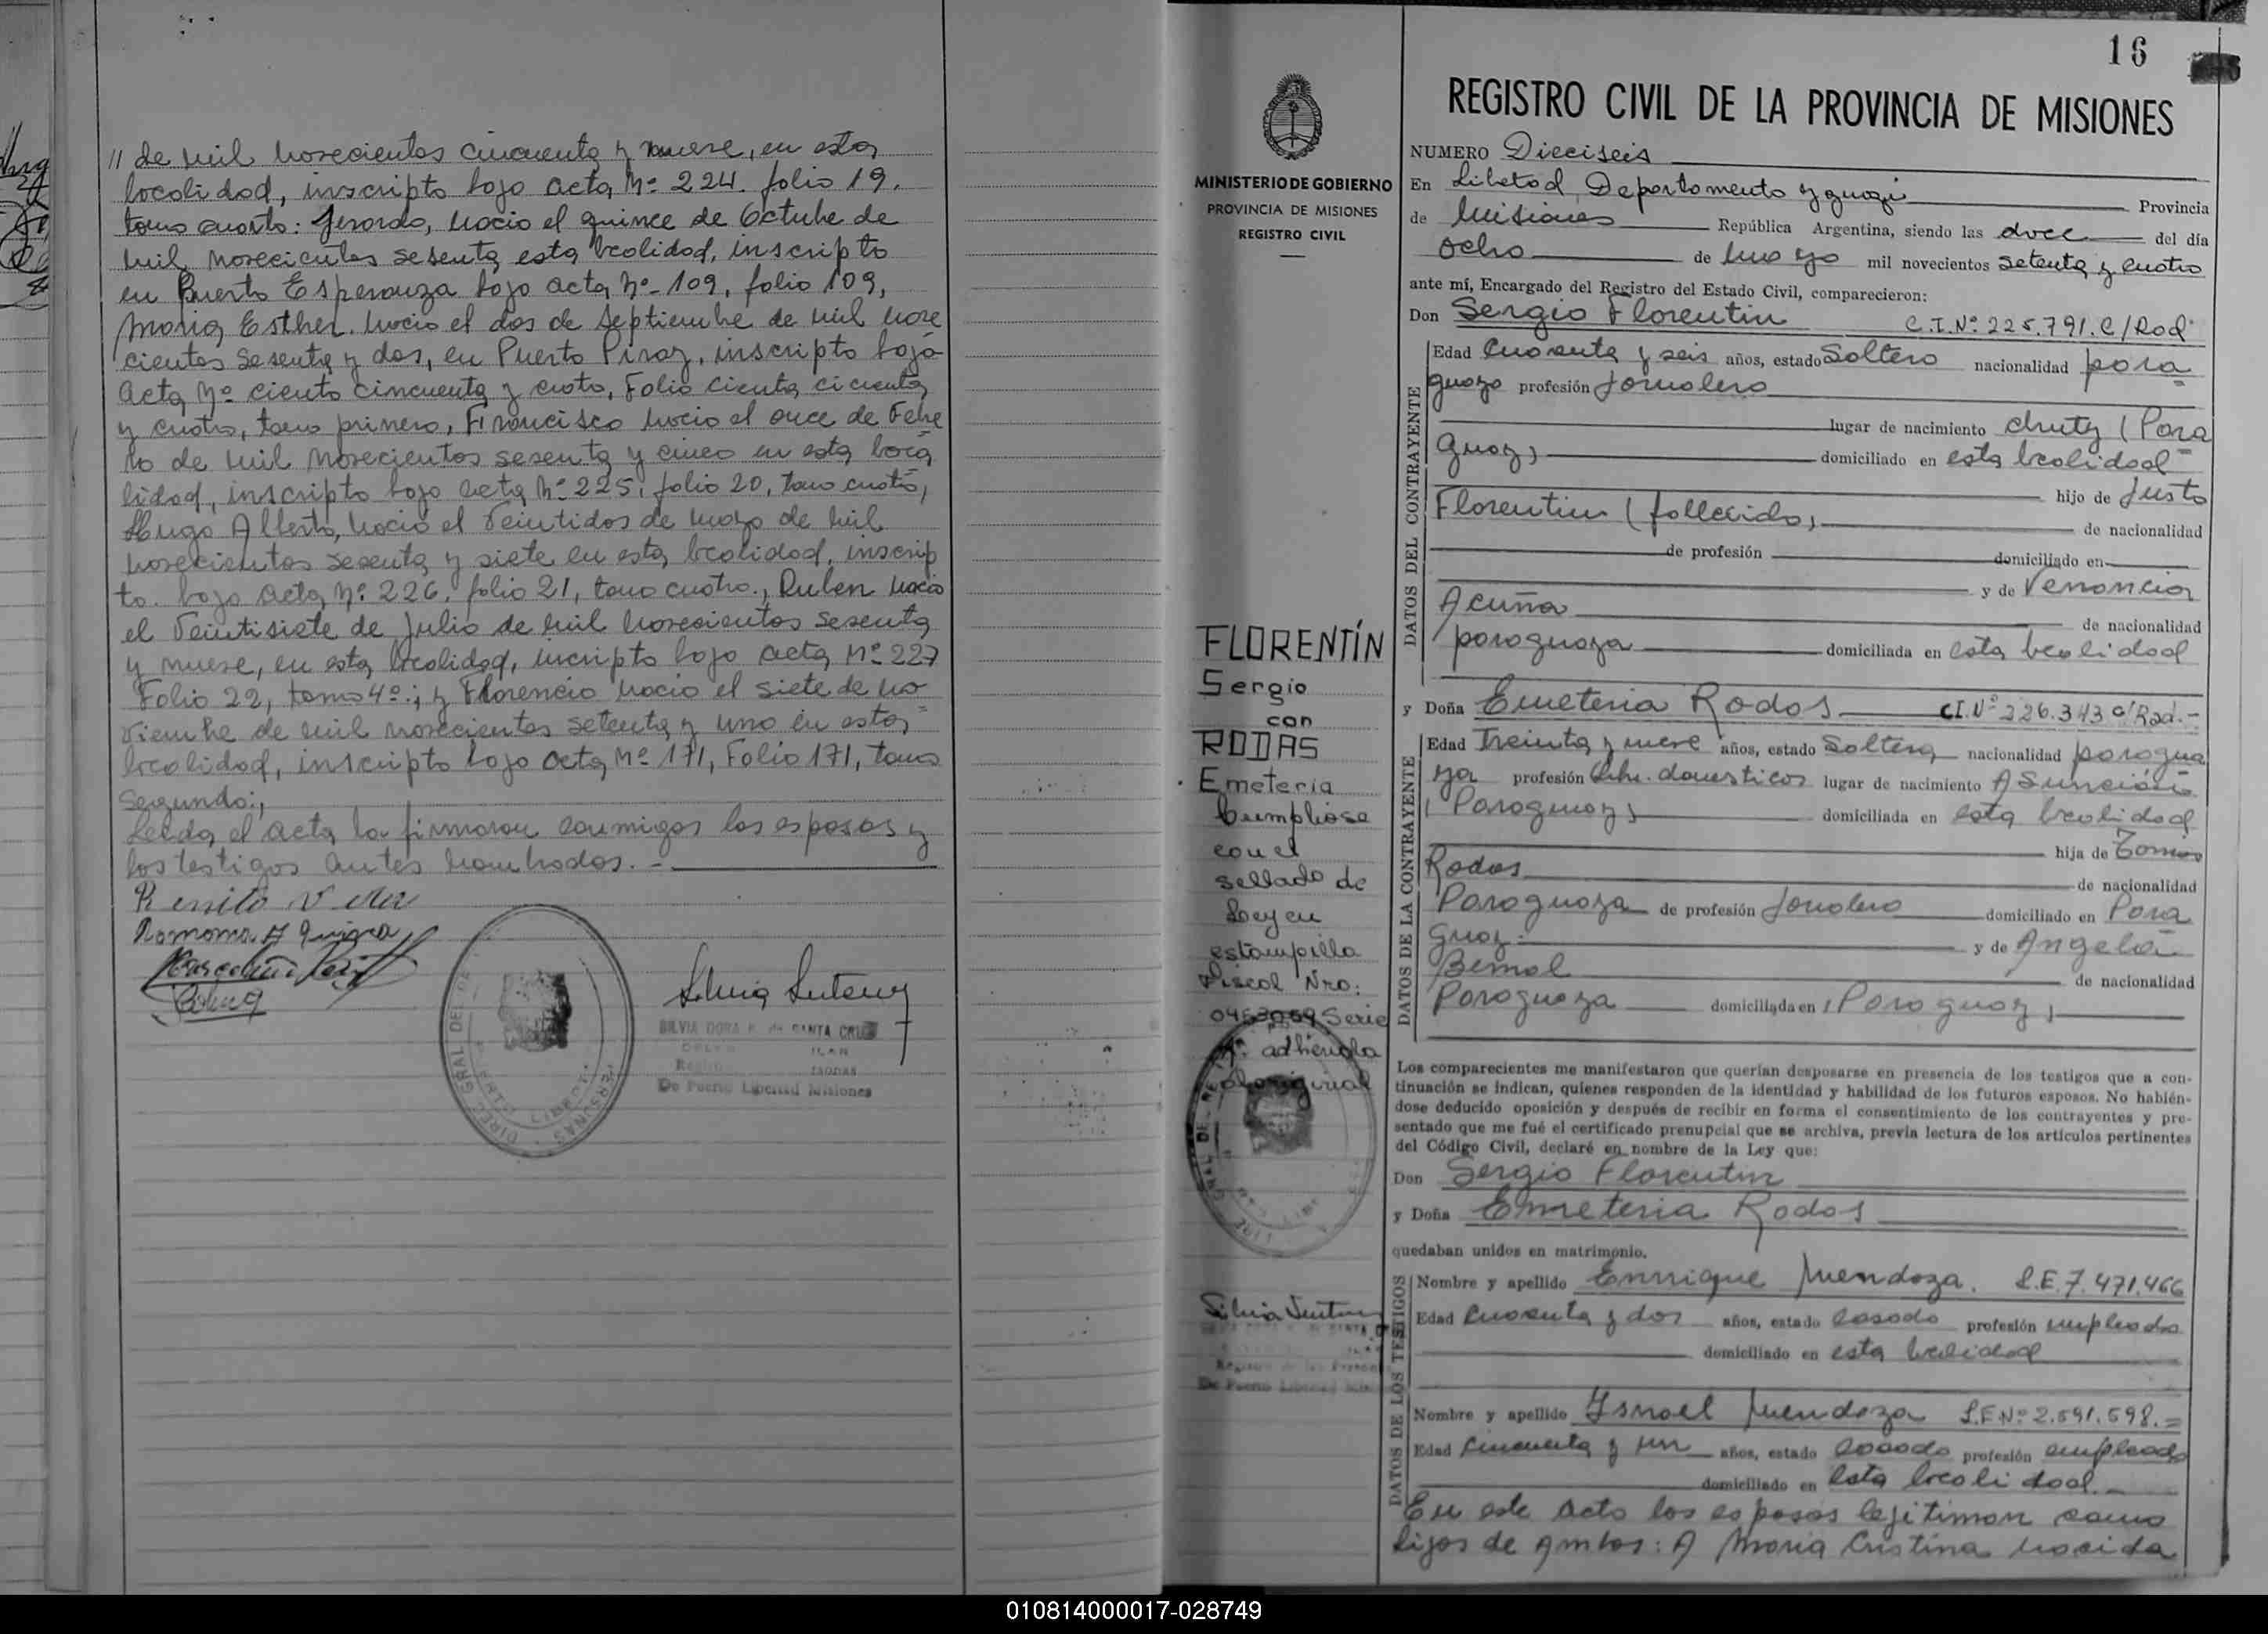 // de mil novecientos cincuenta y nueve, en esta
localidad, inscripto bajo acta Nº 224. folio 19.
tomo cuarto: Gerardo, nacio el quince de Octubre de
mil novecientos sesenta esta localidad, inscripto
en Puerto Esperanza bajo acta Nº 109, folio 109,
Maria Esther. nacio el dos de Septiembre de mil nove
cientos sesenta y dos, en Puerto Piray, inscripto bajo
acta Nº ciento cincuenta y cuatro, Folio ciento cicuenta
y cuatro, tomo primero, Francisco nacio el once de Febre
ro de mil novecientos sesenta y cinco en esta loca
lidad, inscripto bajo acta Nº 225, folio 20, tomo cuatro,
Hugo Alberto, nacio el veintidos de mayo de mil
novecientos sesenta y siete en esta localidad, inscrip
to. bajo acta Nº 226, folio 21, tomo cuatro., Ruben nacio
el veintisiete de Julio de mil novecientos sesenta
y nueve, en esta localidad, incripto bajo acta Nº 227
Folio 22, tomo 4º.; y Florencio nacio el siete de no
viembre de mil novecientos setenta y uno en esta
localidad, inscripto bajo acta Nº 171, Folio 171, tomo
segundo:,
Leida el acta la firmaron conmigo los esposos y
los testigos antes nombrados. -
Silvia
SILVIA DORA de SANTA CRUZ
De Puerto Libertad Misiones
16
REGISTRO CIVIL DE LA PROVINCIA DE MISIONES
MINISTERIO DE GOBIERNO
PROVINCIA DE MISIONES
REGISTRO CIVIL
NUMERO Dieciseis
En Libetad, Departamento Yguazú Provincia
de Misiones República Argentina, siendo las doce del día
ocho de mayo mil novecientos setenta y cuatro
ante mí, Encargado del Registro del Estado Civil, comparecieron:
Don Sergio Florentin C.I.Nº 225.791.C/Rad
DATOS DEL CONTRAYENTE
Edad Cuarenta y seis años, estado Soltero nacionalidad para
guayo profesión Jornalero
lugar de nacimiento (Para
guay) domiciliado en esta localidad
hijo de Justo
Florentin (fallecido) de nacionalidad
de profesión domiciliado en
y de Venancia
Acuña de nacionalidad
paraguaya domiciliada en esta localidad
y Doña Emeteria Rodas C.I.Nº 226.343 c/Rad.-
DATOS DE LA CONTRAYENTE
Edad Treinta y nueve años, estado Soltera nacionalidad paragua
ya profesión Lab. domesticos lugar de nacimiento Asunción
(Paraguay) domiciliada en esta localidad
hija de Tomas
Rodas de nacionalidad
Paraguaya de profesión Jornalero domiciliado en Para
guay. y de Angela
Bernal de nacionalidad
Paraguaya domiciliada en (Paraguay)
Los comparecientes me manifestaron que querían desposarse en presencia de los testigos que a con-
tinuación se indican, quienes responden de la identidad y habilidad de los futuros esposos. No habién-
dose deducido oposición y después de recibir en forma el consentimiento de los contrayentes y pre-
sentado que me fué el certificado prenupcial que se archiva, previa lectura de los artículos pertinentes
del Código Civil, declaré en nombre de la Ley que:
Don Sergio Florentin
y Doña Emeteria Rodas
quedaban unidos en matrimonio.
DATOS DE LOS TESTIGOS
Nombre y apellido Enrrique Mendoza. L.E.7.471.466
Edad Cuarenta y dos años, estado casado profesión empleado
domiciliado en esta localidad
Nombre y apellido Ysmael Mendoza L.E Nº 2.591.598.=
Edad Cincuenta y un años, estado casado profesión empleado
domiciliado en esta localidad.-
En este acto los esposos legitiman como
hijos de ambos: A Maria Cristina nacida
FLORENTÍN
Sergio
con
RODAS
Emeteria
Cumpliose
con el
sellado de
Ley en
estampilla
Fiscal Nro:
0463069 Serie
adherida
al original
De Puerto Libertad
010814000017-028749